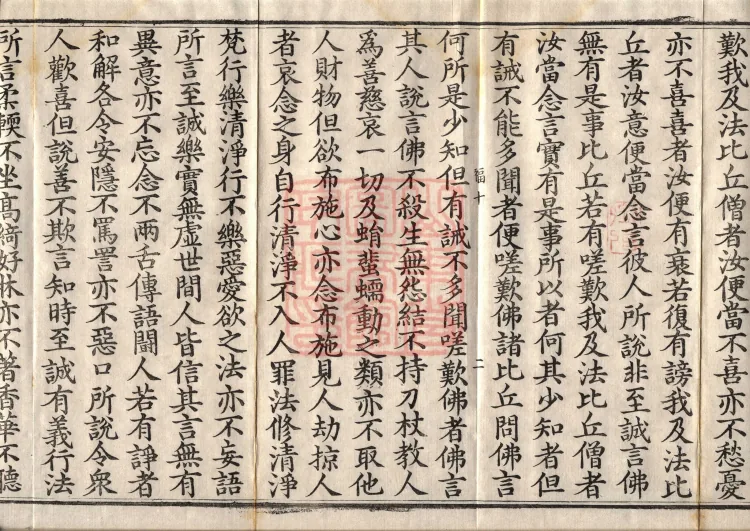 歎我及法比丘僧者汝便當不喜亦不愁憂
亦不喜喜者汝便有衰若復有謗我及法比
丘者汝意便當念言彼人所說非至誠言佛
無有是事比丘若有嗟歎我及法比丘僧者
汝當念言實有是事所以者何其少知者但
有誡不能多聞者便嗟歎佛諸比丘問佛言
福十 二
何所是少知但有誡不多聞嗟歎佛者佛言
其人說言佛不殺生無怨結不持刀杖教人
為善慈哀一切及蜎蜚蠕動之類亦不取他
人財物但欲布施心亦念布施見人劫掠人
者哀念之身自行清淨不入人罪法修清淨
梵行樂清淨行不樂惡愛欲之法亦不妄語
所言至誠樂實無虛世間人皆信其言無有
異意亦不忘念不兩舌傳語鬪人若有諍者
和解各令安隱不罵詈亦不惡口所說令衆
人歡喜但說善不欺言知時至誠有義行法
所言柔輭不坐高綺好牀亦不著香華不聽